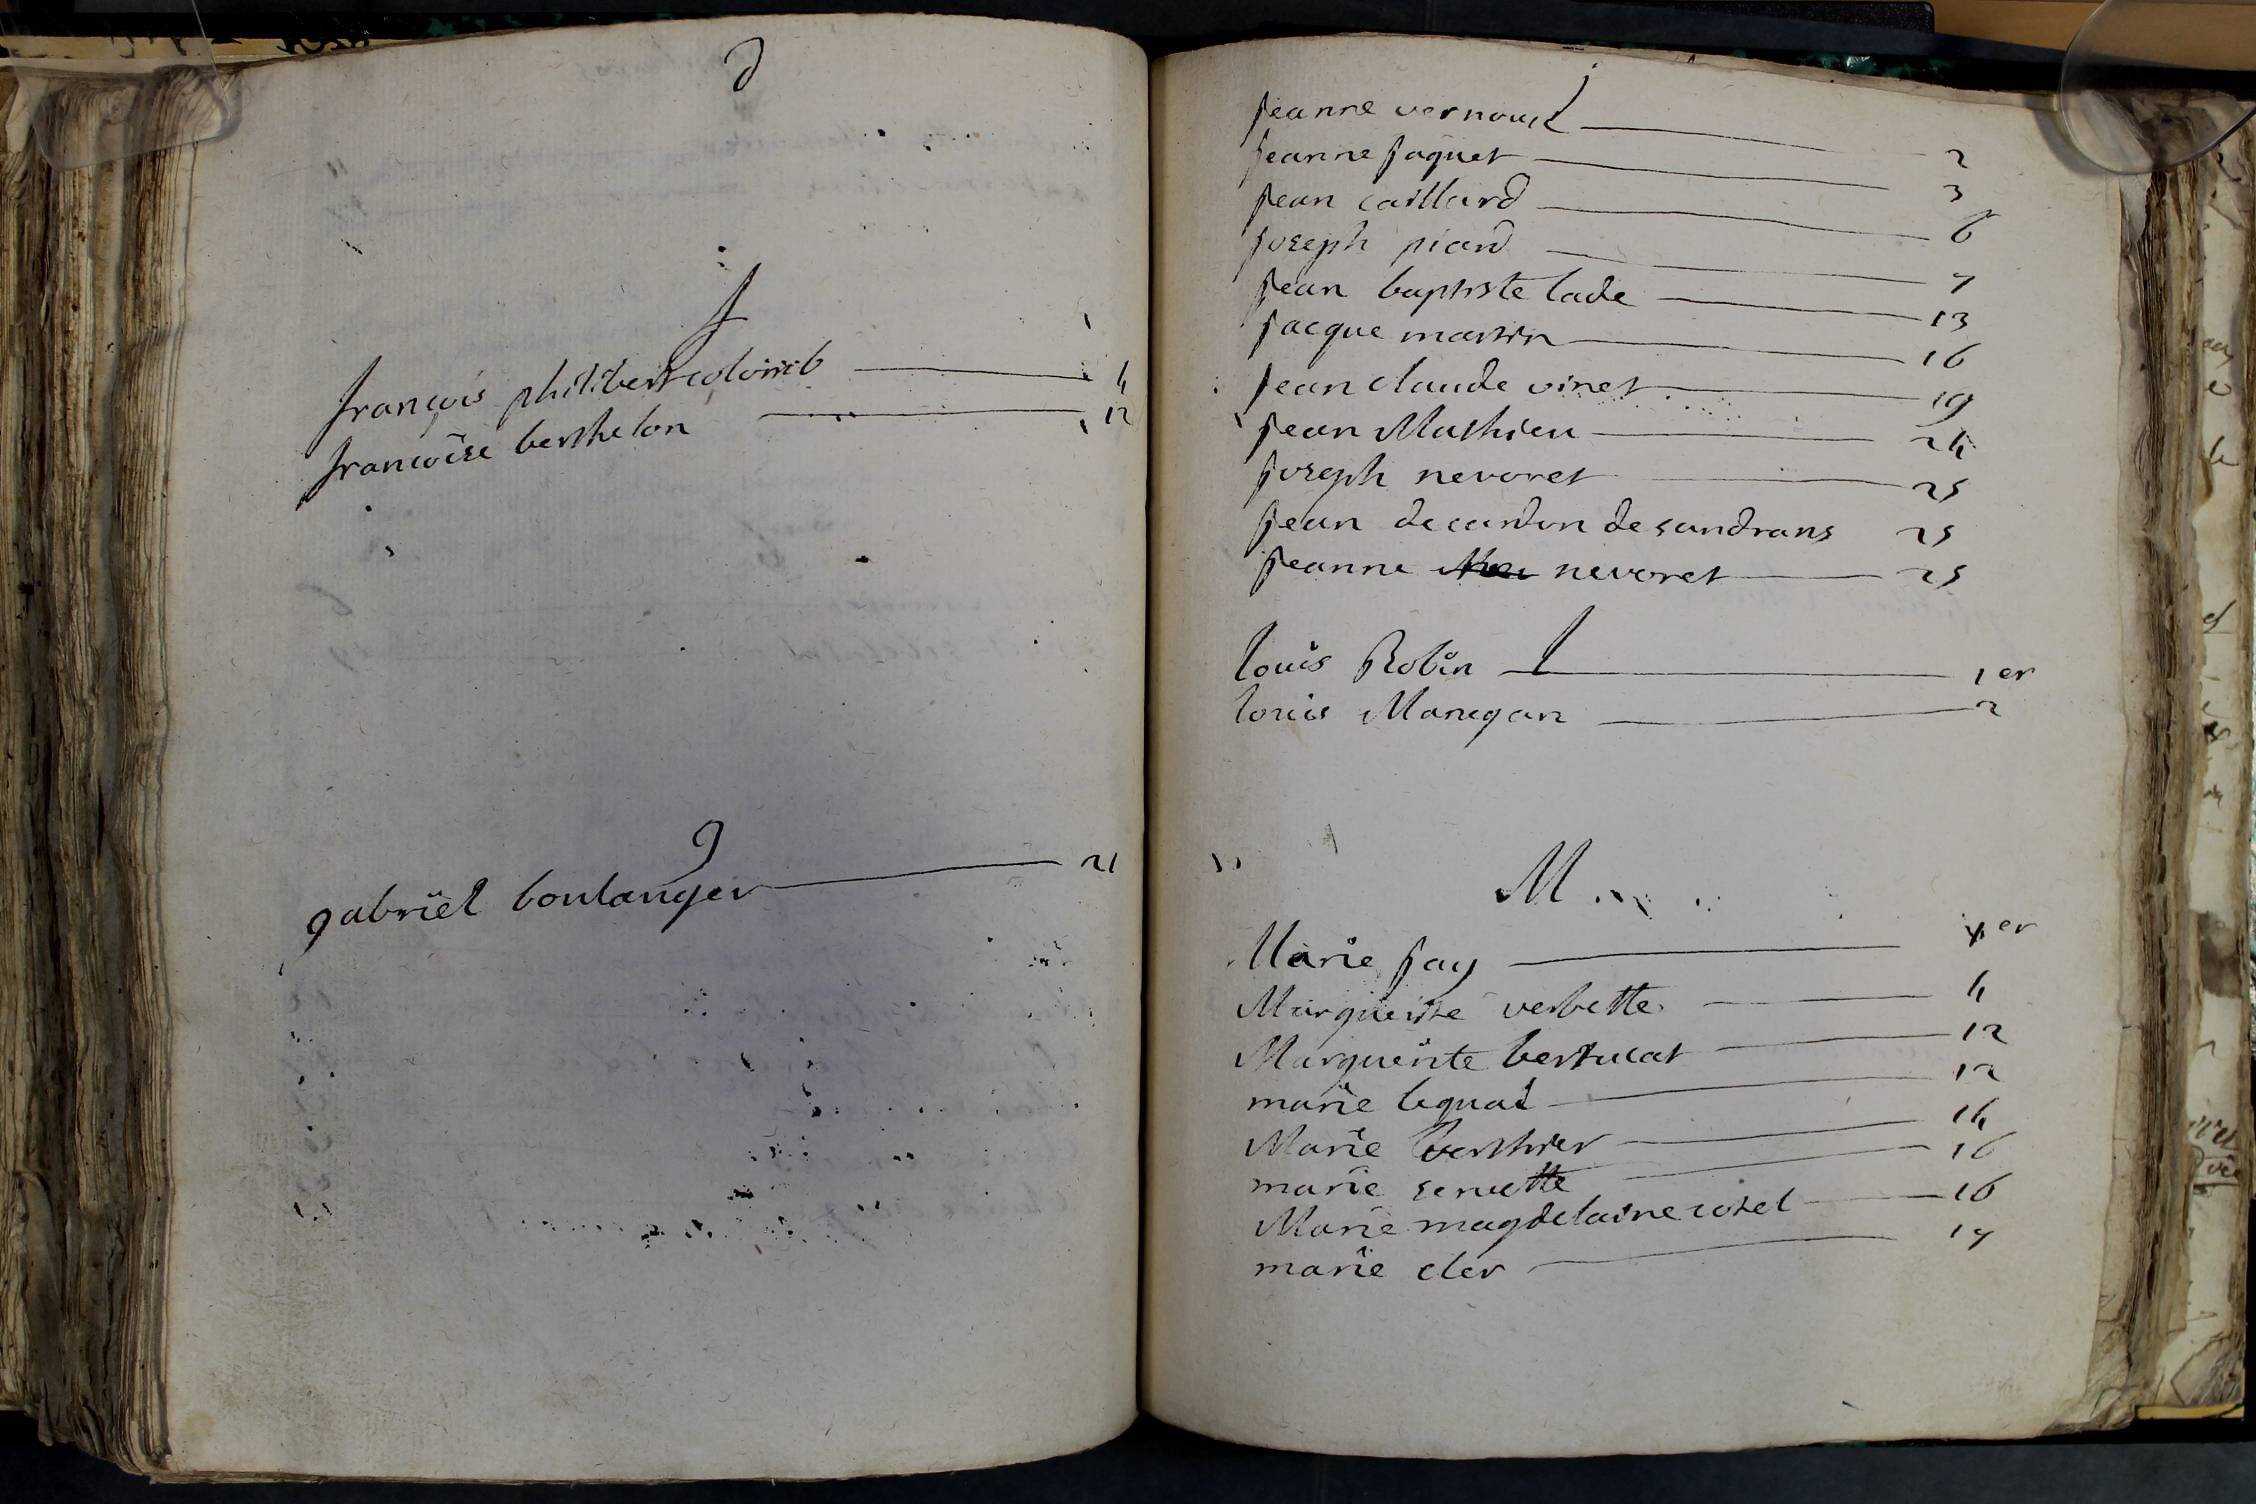 d
f
françois philibert colomb 4
francoise berthelon 12
g
gabriel boulanger 21
j
jeanne vernoud 2
jeanne jaquet 3
jean caillard 6
joseph picard 7
jean baptiste lade 13
jacque martin 16
jean claude vinet 19
jean Mathieu 24
joseph nevoret 25
jean decardon desandrans 25
jeanne nevoret 25
l
louis Robin 1er
louis Manegan 2
M
Marie jay er
Marguerite verbette 4
Marguerite bertucat 12
marie lequat 12
Marie berthier 14
marie servette 16
Marie magdelaine cotel 16
marie cler 17